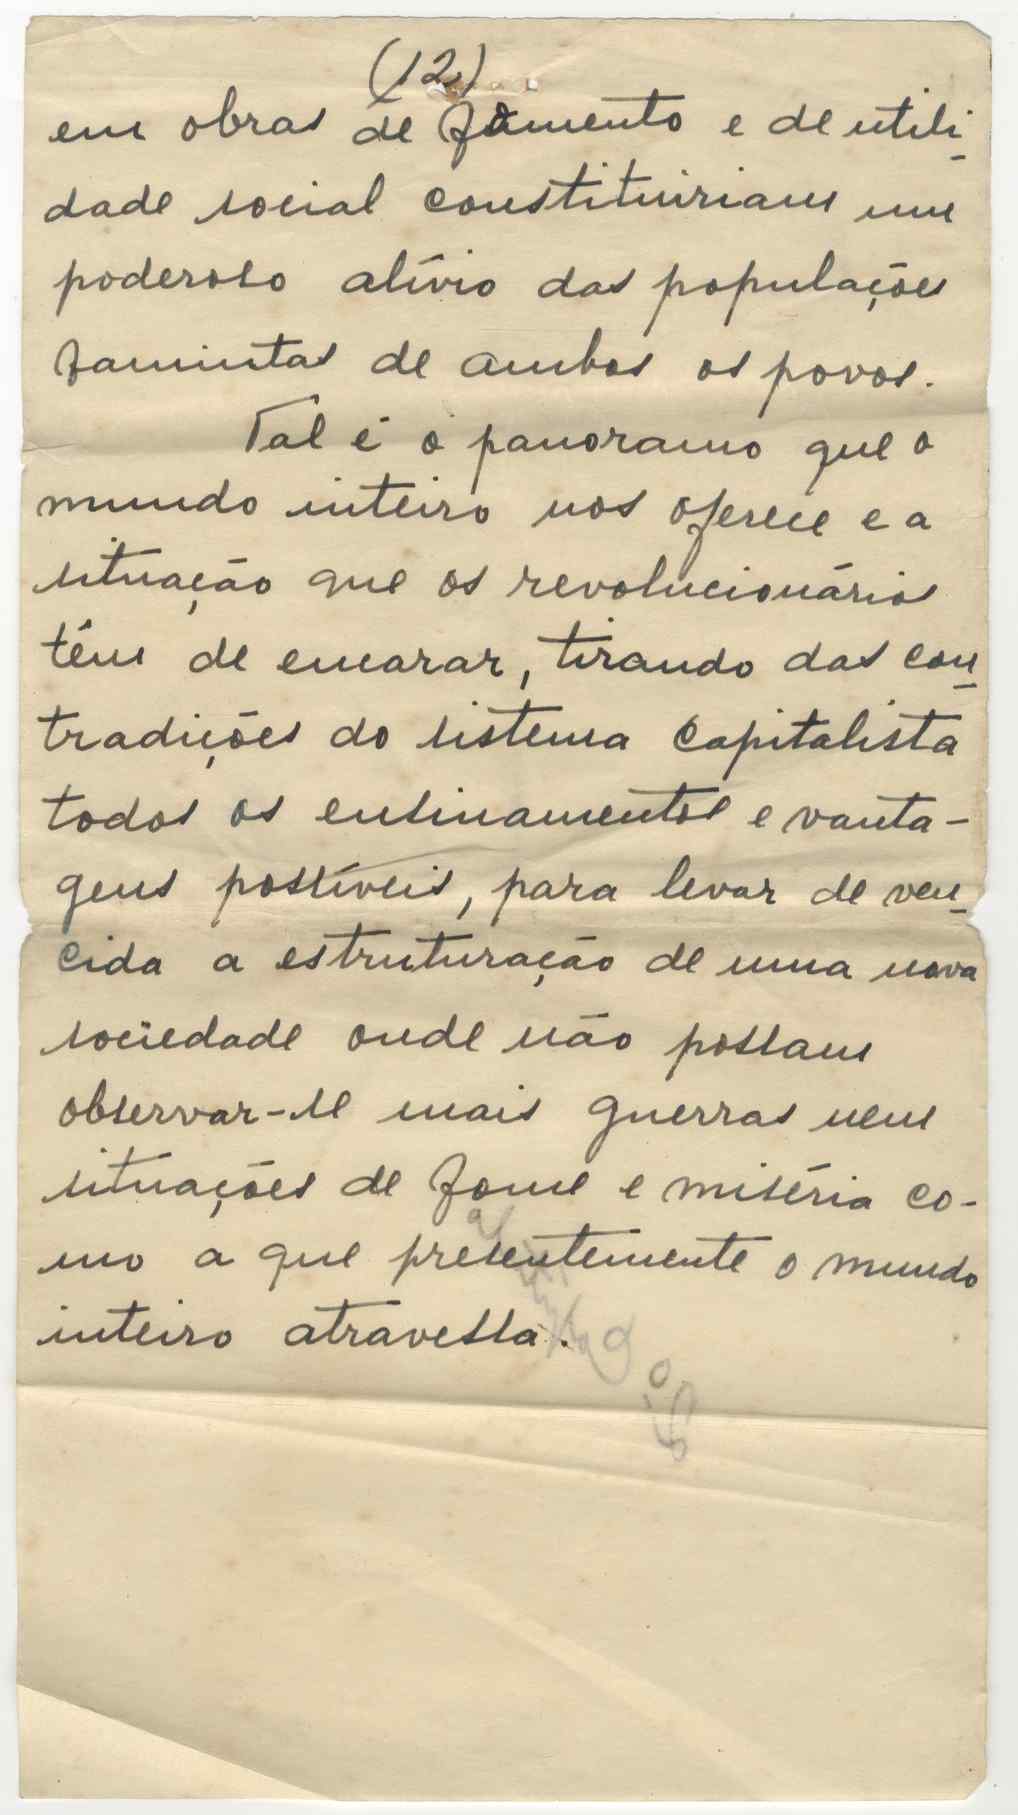 (12)
em obras de fomento e de utili-
dade social constituiriam um
poderoso alívio das populações
famintas de ambos os povos.
Tal é o panoramo que o
mundo inteiro nos oferece e a
situação que os revolucionários
têm de encarar, tirando das con-
tradições do sistema capitalista
todos os ensinamentos e vanta-
gens possíveis, para levar de ven-
cida a estruturação de uma nova
sociedade onde não possam
observar-se mais guerras nem
situações de fome e miséria co-
mo a que presentemente o mundo
inteiro atravessa.